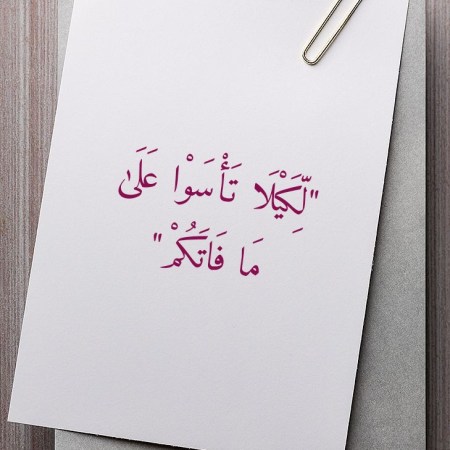 "لِّكَيْلَا تَأْسَوْا عَلَىٰ
مَا فَاتَكُمْ"